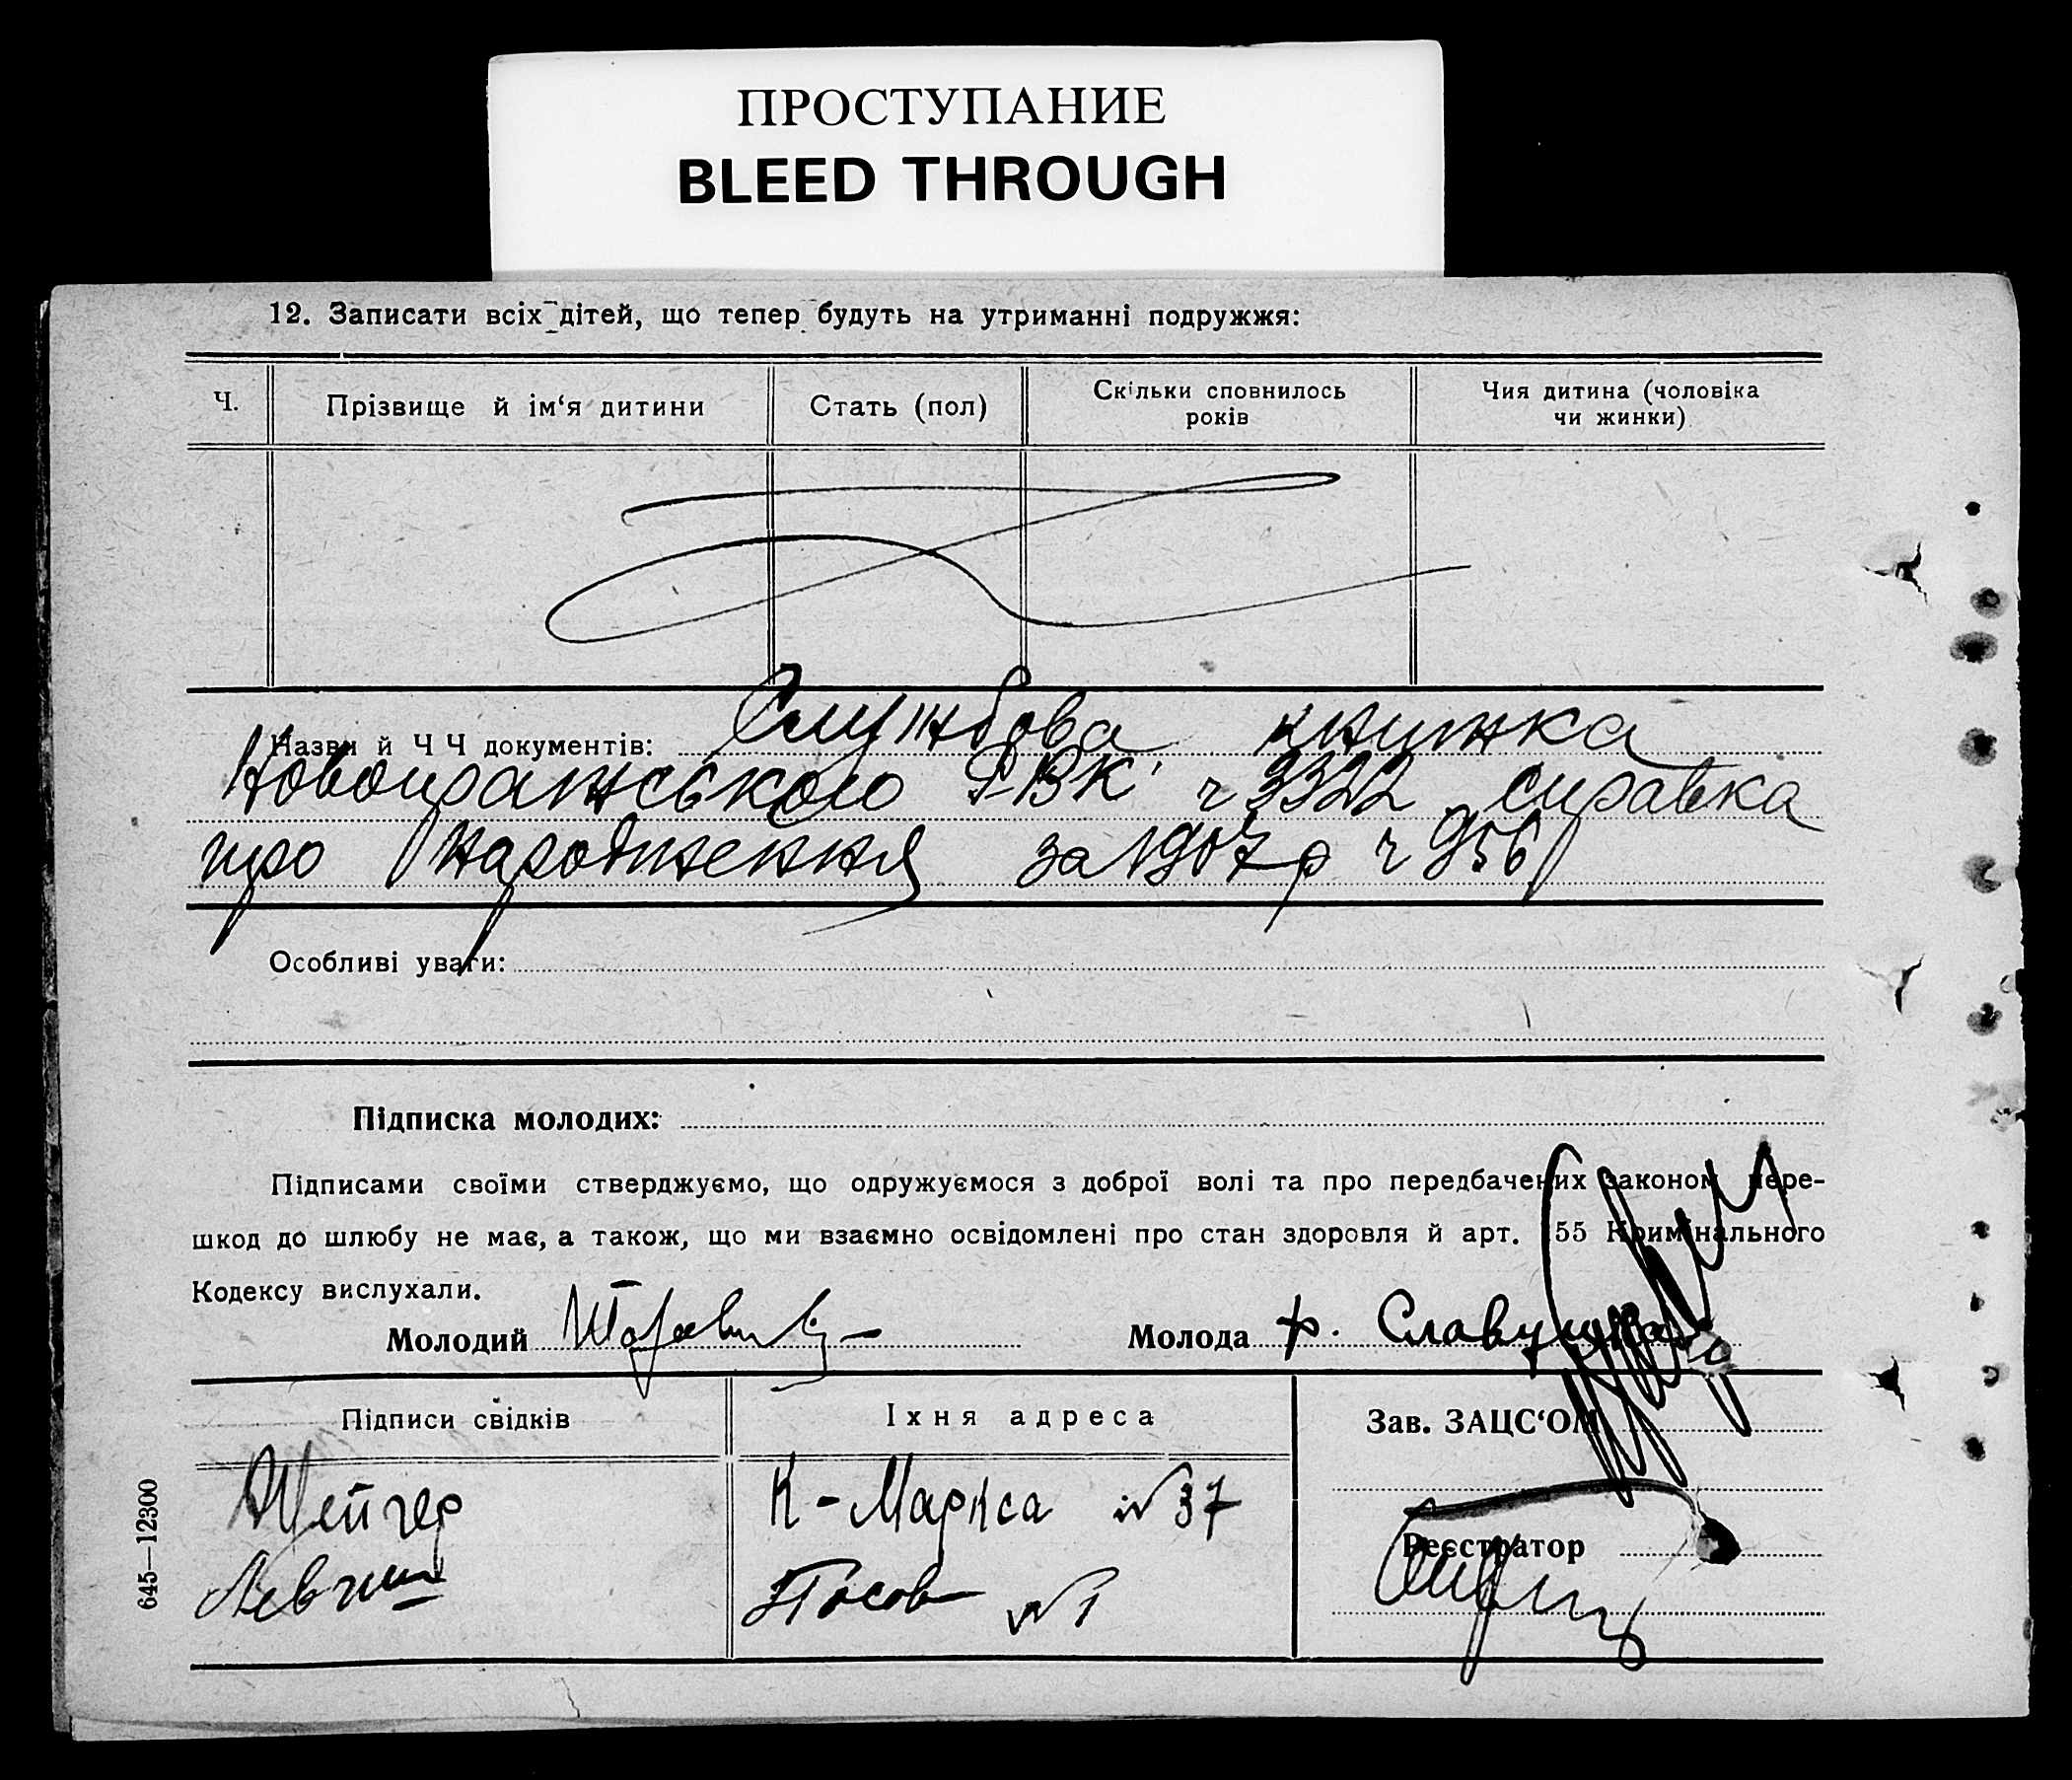 ПРОСТУПАНИЕ
BLEED THROUGH
12. Записати всіх дітей, що тепер будуть на утриманні подружжя:
Ч.
Прізвище й ім‘я дитини
Стать (пол)
Скільки сповнилось
років
Чия дитина (чоловіка
чи жинки)
Назви й Ч Ч документів: Службова книжка
Новопражського РВК ч 3322 справка
про народження за 1907 р ч 956
Особливі уваги:
Підписка молодих:
Підписами своїми стверджуємо, що одружуємося з доброї волі та про передбачених законом пере-
шкод до шлюбу не має, а також, що ми взаємно освідомлені про стан здоровля й арт. 155 Кримінального
Кодексу вислухали.
Молодий
Молода
Підписи свідків
Їхня адреса
Зав. ЗАЦС‘ОМ
К-Маркса № 37
№ 1
Реєстратор
645—12300